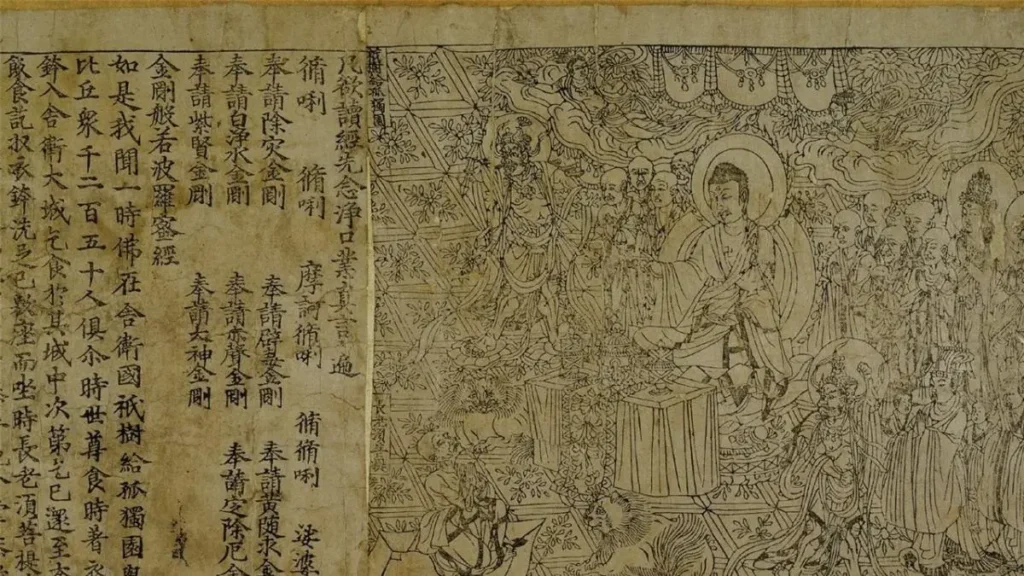 祇樹給孤獨園
凡欲讀經先念淨口業真言一遍
脩唎 脩唎 摩訶脩唎 脩脩唎 娑婆
奉請除灾金剛 奉請辟毒金剛 奉請黄隨求金
奉請白淨水金剛 奉請赤聲金剛 奉請定除厄金
奉請紫賢金剛 奉請大神金剛
金剛般若波羅蜜經
如是我聞一時佛在舍衛國祇樹給孤獨園與
比丘衆千二百五十人俱尒時世尊食時著衣
鉢入舍衛大城乞食於其城中次第乞已還至本
飯食訖收衣鉢洗足已敷座而坐時長老湏菩提